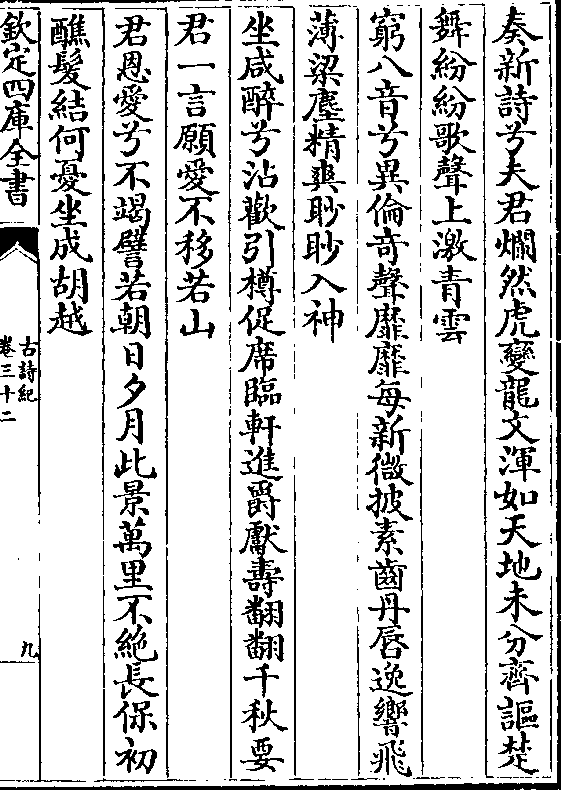 奏新詩兮夫君爛然虎變龍文渾如天地未分齊謳楚
舞紛紛歌聲上激青雲
窮八音兮異倫奇聲靡靡每新微披素齒丹唇逸響飛
薄梁塵精爽眇眇入神
坐咸醉兮沾歡引樽促席臨軒進爵獻壽翻翻千秋要
君一言願愛不移若山
君恩愛兮不竭譬若朝日夕月此景萬里不絶長保初
醮髮結何憂坐成胡越
欽定四庫全書
古詩紀
卷三十二
九